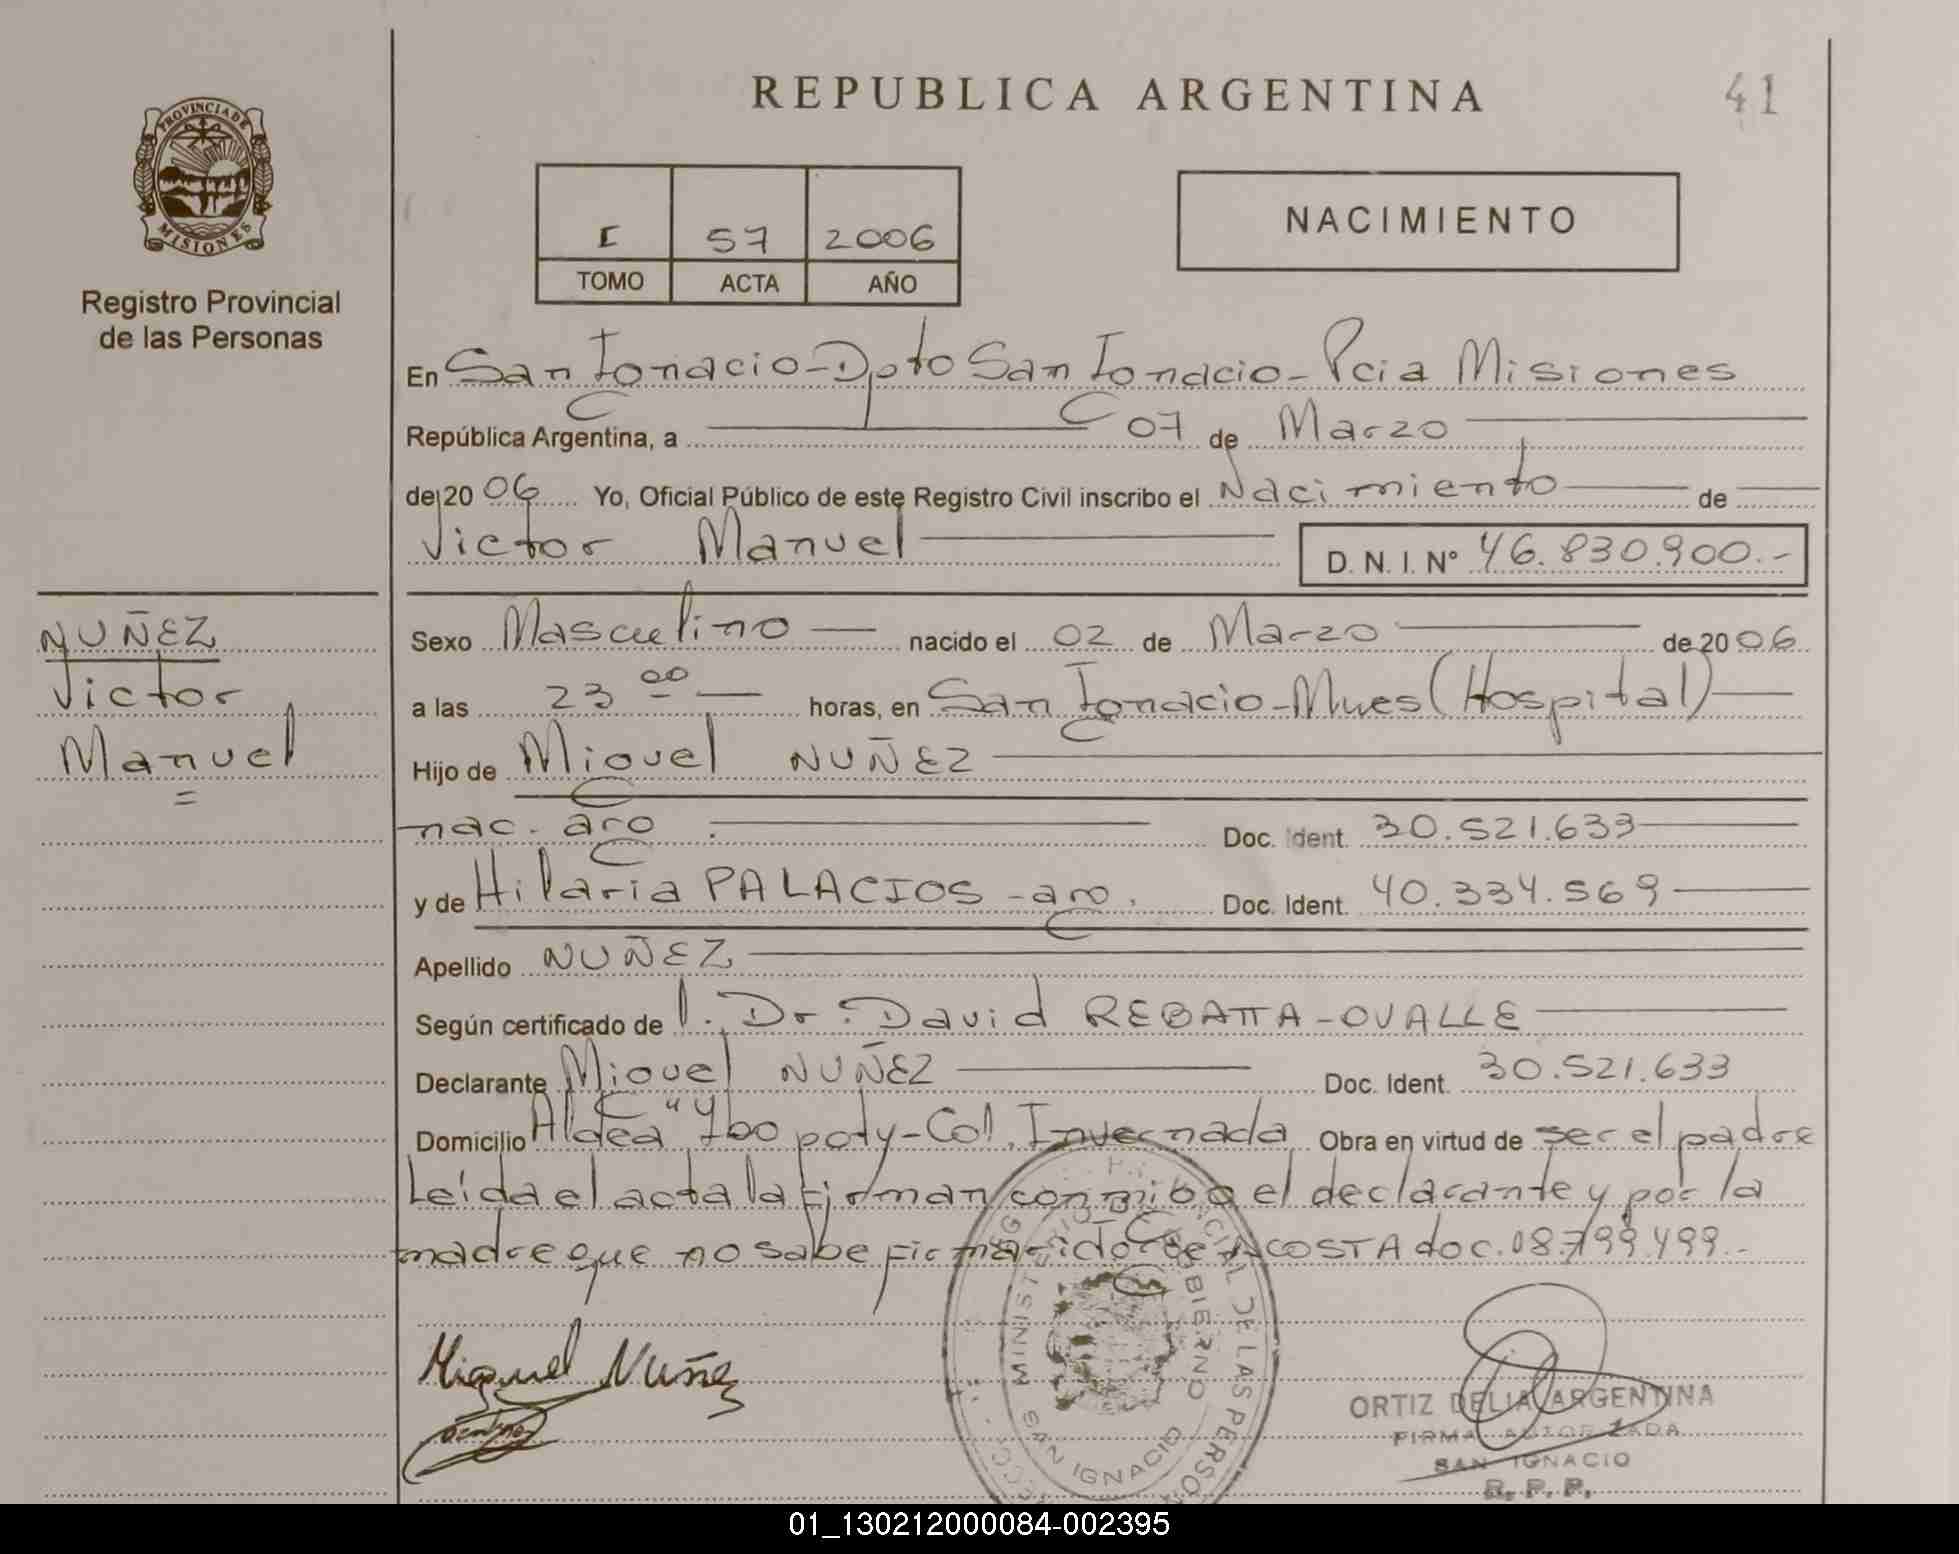 REPUBLICA ARGENTINA
41
PROVINCIA DE
MISIONES
Registro Provincial
de las Personas
I 57 2006
TOMO ACTA AÑO
NACIMIENTO
En San Ignacio - Dpto San Ignacio - Pcia Misiones
República Argentina, a 07 de Marzo
de 20 06 Yo, Oficial Público de este Registro Civil inscribo el Nacimiento de
Victor Manuel D. N. I. Nº 46.830.900.-
NUÑEZ
Victor
Manuel
Sexo Masculino nacido el 02 de Marzo de 20 06
a las 23 00 horas, en San Ignacio - Mnes (Hospital)
Hijo de Miguel NUÑEZ
nac. arg. Doc. Ident. 30.521.633
y de Hilaria PALACIOS - arg. Doc. Ident. 40.334.569
Apellido NUÑEZ
Según certificado de Dr. David REBATTA - OVALLE
Declarante Miguel NUÑEZ Doc. Ident. 30.521.633
Domicilio Aldea "Ybopoty - Col. Invernada Obra en virtud de ser el padre
Leída el acta la firman conmigo el declarante y por la
madre que no sabe firmar ACOSTA doc. 08.799.499.-
Miguel Nuñez
MINISTERIO DE GOBIERNO
SAN IGNACIO
ORTIZ DELIA ARGENTINA
FIRMA AUTORIZADA
SAN IGNACIO
R. P. P.
01_130212000084-002395